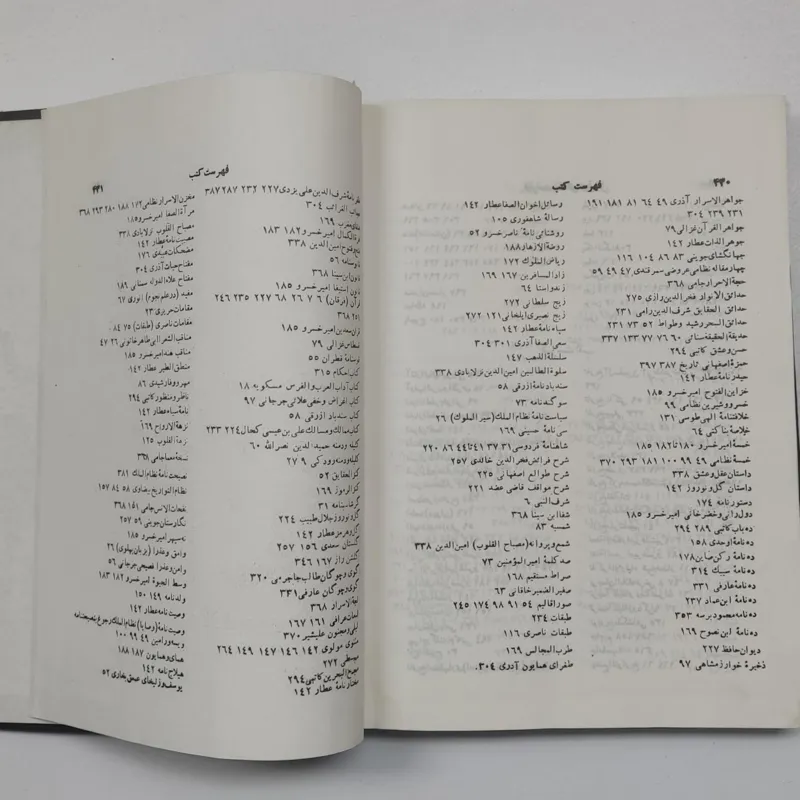 ۴۴۰
فهرست کتب
جواهر الاسرار آذری ۴۹ ۶۴ ۸۱ ۱۸۱ ۱۹۱
۲۳۱ ۲۳۹ ۳۰۴
جواهر القرآن غزالی ۷۹
جواهر الذات عطار ۱۴۲
جهانگشای جوینی ۸۳ ۸۶ ۱۰۴ ۱۱۶
چهارمقاله نظامی عروضی سمرقندی ۴۷ ۴۹ ۵۹
حجة الاحرار جامی ۳۶۸
حدائق الانوار فخر الدین رازی ۲۷۵
حدائق الحقایق شرف الدین رامی ۲۳۱
حدائق السحر رشید وطواط ۵۲ ۷۳ ۲۳۱
حدیقة الحقیقه سنائی ۶۰ ۷۶ ۷۷ ۱۳۳ ۳۳۷
حسن وعشق کاتبی ۲۹۴
حمزة اصفهانی تاریخ ۳۸۷ ۳۹۷
حیدر نامه عطار ۱۴۲
خزاین الفتوح امیر خسرو ۱۸۵
خسرو وشیرین نظامی ۹۹
خلاصة بناکتی ۶۴
خمسة امیر خسرو ۱۸۰ تا ۱۸۲ ۱۸۵
خمسة نظامی ۴۹ ۹۹ ۱۰۰ ۱۸۱ ۲۹۳ ۳۷۰
داستان عقل وعشق ۳۳۸
داستان گل ونوروز ۱۴۲
دستور نامه
دول رانی وخضر خانی امیر خسرو ۱۸۵
ده باب کاتبی ۲۸۹ ۲۹۴
ده نامة اوحدی ۱۵۸
ده نامة رکن صاین ۱۷۸
ده نامة سیبک ۳۱۴
ده نامة عارفی ۳۳۱
ده نامة ابن عماد ۲۳۷
ده نامة محمود برسه ۳۵۳
ده نامة ابن نصوح ۱۶۹
دیوان حافظ ۲۲۷
ذخیرة خوارزمشاهی ۹۷
رسائل اخوان الصفا عطار ۱۴۲
رسالة شاهفوری ۱۰۵
روشنائی نامة ناصر خسرو ۵۲
روضة الازهار ۱۸۸
ریاض الملوک ۱۷۲
زاد المسافرین ۱۶۷ ۱۶۹
زند واستا ۶۴
زیج سلطانی ۲۷۲
زیج نصیری ایلخانی ۱۲۱ ۲۷۲
سیاه نامة عطار ۱۴۲
سعی الصفا آذری ۳۰۱ ۳۰۴
سلسلة الذهب ۱۴۷
سلوة الطالبین امین الدین نزلابادی ۳۳۸
سندباد نامة ازرقی ۵۸
سوگند نامه ۷۳
سیاست نامة نظام الملک (سیر الملوک) ۲۶
سی نامة حسینی ۱۶۹
شاهنامة فردوسی ۳۱ ۳۷ ۴۱ تا ۴۴ ۸۶ ۲۲۰
شرح فرائض فخر الدین خالدی ۲۵۷
شرح طوالع اصفهانی ۲۲۵
شرح مواقف قاضی عضد ۲۲۱
شرف النبی ۶
شفا ابن سینا ۳۶۸
شمسیه ۸۳
شمع وپروانه (مصباح القلوب) امین الدین ۳۳۸
صد کلمة امیر المؤمنین ۷۳
صراط مستقیم ۱۶۸
صفیر الضمیر خاقانی ۶۳
صور اقالیم ۵۴ ۹۱ ۹۸ ۱۷۴ ۲۴۵
طبقات ۲۳۴
طبقات ناصری ۱۱۶
طرب المجالس ۱۶۹
طغرای همایون آذری ۳۰۴
۴۴۱
فهرست کتب
نامة شرف الدین علی یزدی ۲۲۷ ۲۳۲ ۲۸۷ ۳۸۷
الغرائب ۳۰۴
مغرب ۱۶۹
الکمال امیر خسرو ۱۸۲ ۱۸۳
وفتوح امین الدین ۳۳۸
نامه ۵۶
ابن سینا ۳۶۸
استیفا امیر خسرو ۱۸۵
قرآن (فرقان) ۶ ۷ ۲۶ ۶۸ ۲۲۷ ۲۳۵ ۲۴۶
۲۵۱ ۳۶۸
سعدین امیر خسرو ۱۸۵
غزالی ۷۹
قطران ۵۵
احکام ۳۱۵
کتاب آداب العرب والفرس مسکویه ۱۸
کتاب اغراض وخفی علائی جرجانی ۹۷
کتاب سندباد ازرقی ۵۸
کتاب ممالک ومسالک علی بن عیسی کحال ۲۲۴ ۲۳۳
کلیله ودمنه حمید الدین نصر الله ۶۰
کلیله ودمنه رودکی ۹ ۲۷
کنز الحقایق ۵۲
کنز الرموز ۱۶۹
گرشاسنامه ۳۱
گل ونوروز جلال طبیب ۲۲۴
گل وهرمز عطار ۱۴۲
گلستان سعدی ۱۵۶ ۲۵۷
گلشن راز ۱۶۷ ۳۴۶
گوی وچوگان طالب جاجرمی ۳۲۰
گوی وچوگان عارفی ۳۳۱
الاسرار ۳۶۸
لمعات عراقی ۱۶۱ ۱۶۷
لیلی ومجنون علیشیر ۳۷۰
مثنوی مولوی ۱۴۲ ۱۴۶ ۱۴۷ ۱۴۹ ۲۶۴
مجسطی ۲۷۲
مجمع البحرین کاتبی ۲۹۴
مختار نامة عطار ۱۴۲
مخزن الاسرار نظامی ۱۷۲ ۱۸۸ ۲۸۰ ۲۹۳ ۳۶۸
مرآة الصفا امیر خسرو ۱۸۵
مصباح القلوب نزلابادی ۳۳۸
مصیبت نامة عطار ۱۴۲
مضحکات عبیدی ۱۷۶
مفتاح حیات آذری ۳۰۴
مفتاح علاء الدوله سمنانی ۱۸۶
مفید (در علم نجوم) انوری ۶۷
مقامات حریری ۲۳
مقامات ناصری (طبقات) ۷۵ ۸۴
مناقب الشعرا ابی طاهر خاتونی ۲۶ ۴۷
مناقب هند امیر خسرو ۱۸۵
منطق الطیر عطار ۱۴۲
مهر ووفا رشیدی ۸۶
ناظر ومنظور کاتبی ۲۹۴
نامة سیاه عطار ۱۴۲
نزهة الارواح ۱۶۹
نزهة القلوب ۱۲۵
نسخة معما جامی
نصیحت نامة نظام الملک ۳۸۱
نظام التواریخ بیضاوی ۵۸ ۸۴ ۱۵۷
نفحات الانس جامی ۱۶۱ ۳۶۸
نگارستان جوینی ۵۹ ۲۵۷
نه سپهر امیر خسرو ۱۸۵
وامق وعذرا (بزبان پهلوی) ۲۶
وامق وعذرا فصیحی جرجانی ۵۶
وسط الحیوة امیر خسرو ۱۸۲ ۱۸۳
ولد نامه ۱۴۹ ۱۵۰
وصیت نامة عطار ۱۴۲
وصیت نامة (وصایا) نظام الملک رجوع نصیحتنامه
ویسه ورامین ۴۹ ۹۹ ۱۰۰
همای وهمایون ۱۸۷ ۱۸۸
هیلاج نامه ۱۴۲
یوسف وزلیخای عمعق بخاری ۵۲